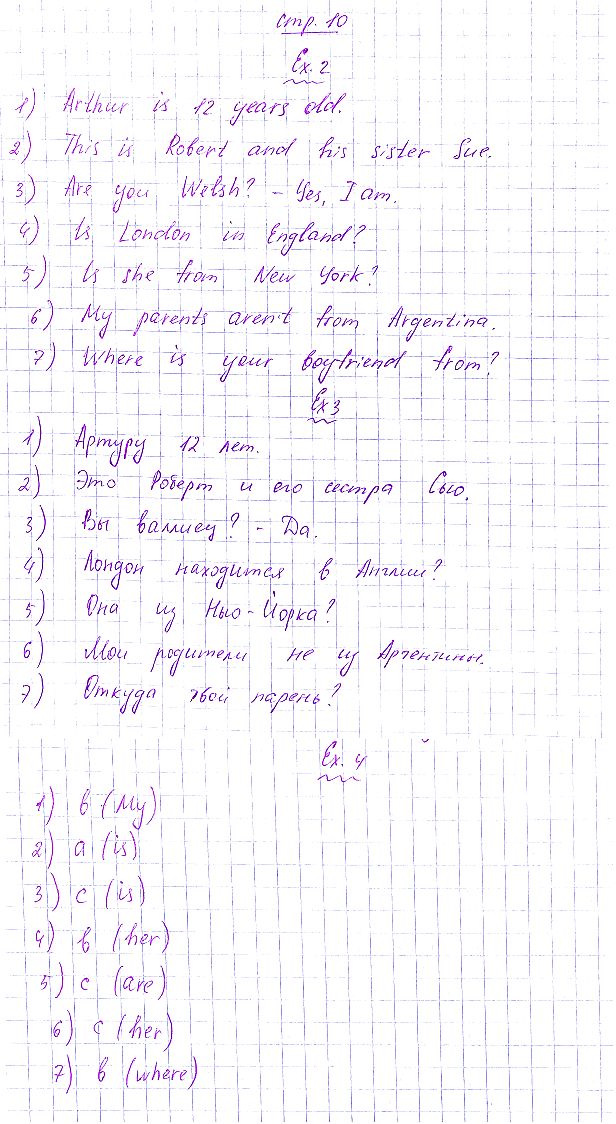 стр. 10
Ex. 2
1) Arthur is 12 years old.
2) This is Robert and his sister Sue.
3) Are you Welsh? - Yes, I am.
4) Is London in England?
5) Is she from New York?
6) My parents aren't from Argentina.
7) Where is your boyfriend from?
Ex 3
1) Артуру 12 лет.
2) Это Роберт и его сестра Сью.
3) Вы валлиец? - Да.
4) Лондон находится в Англии?
5) Она из Нью-Йорка?
6) Мои родители не из Аргентины.
7) Откуда твой парень?
Ex. 4
1) в (My)
2) а (is)
3) с (is)
4) в (her)
5) с (are)
6) с (her)
7) в (where)